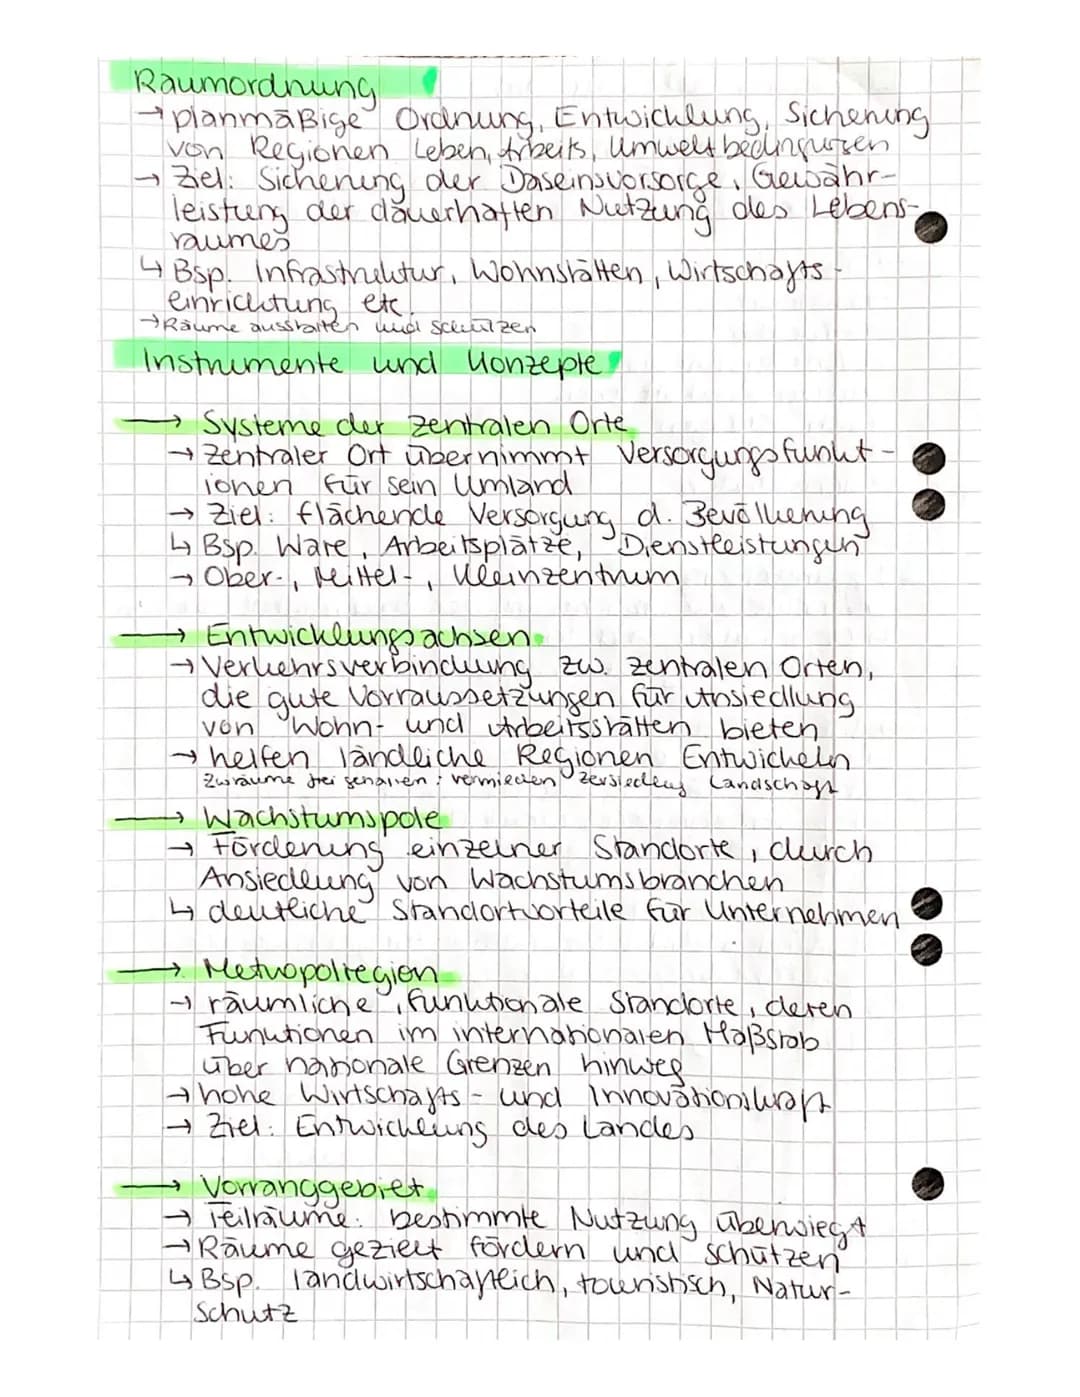 Raumordnung
→ planmäßige Ordnung, Entwicklung, Sicherung
von Regionen Leben, Arbeits, Umweltbedingungen
→ Ziel: Sicherung der Daseinsvorsorge, Gewähr-
leistung der dauerhaften Nutzung des Lebens-
raumes
↳ Bsp. Infrastruktur, Wohnstätten, Wirtschafts-
einrichtung etc.
→ Räume ausstatten und schützen
Instrumente und Konzepte
→ Systeme der zentralen Orte
→ Zentraler Ort übernimmt Versorgungsfunkt-
ionen für sein Umland
→ Ziel: flächende Versorgung d. Bevölkerung
↳ Bsp. Ware, Arbeitsplätze, Dienstleistungen
→ Ober-, Mittel-, Kleinzentrum
→ Entwicklungsachsen
→ Verkehrsverbindung zw. zentralen Orten,
die gute Vorraussetzungen für Ansiedlung
von Wohn- und Arbeitsstätten bieten
→ helfen ländliche Regionen Entwickeln
Zw.räume frei gehalten: vermieden Zersiedlung Landschaft
→ Wachstumspole
→ Förderung einzelner Standorte, durch
Ansiedlung von Wachstumsbranchen
↳ deutliche Standortvorteile für Unternehmen
→ Metropolregion
→ räumliche, funktionale Standorte, deren
Funktionen im internationalen Maßstab
über nationale Grenzen hinweg
→ hohe Wirtschafts- und Innovationskraft
→ Ziel: Entwicklung des Landes
→ Vorranggebiet
→ Teilräume: bestimmte Nutzung überwiegt
→ Räume gezielt fördern und schützen
↳ Bsp. landwirtschaftlich, touristisch, Natur-
schutz